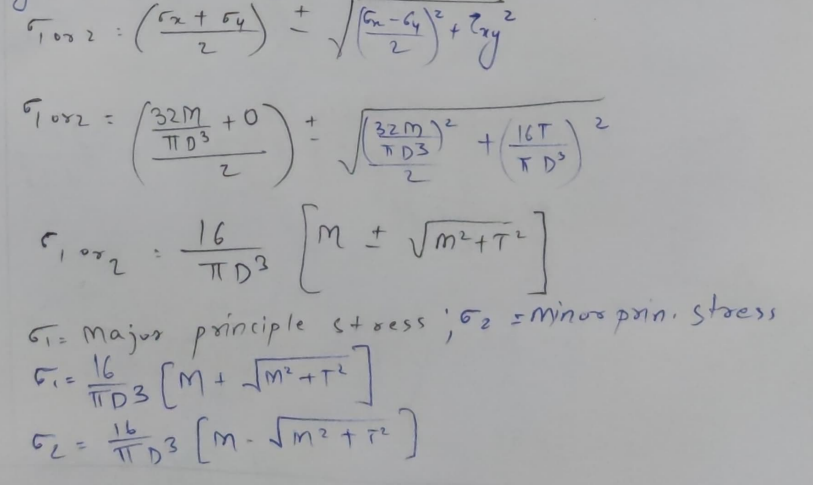 σ1 or 2 : ((σx + σy)/2) ± √(((σx - σy)/2)² + τxy²)
σ1 or 2 = ((32M/πD³ + 0)/2) ± √(((32M/πD3)/2)² + (16T/πD³)²)
σ1 or 2 : 16/πD3 [M ± √M²+T²]
σ1= Major principle stress ; σ2 = Minor prin. stress
σ1= 16/πD3 [M + √M²+T²]
σ2 = 16/πD3 [M - √M² + T²]